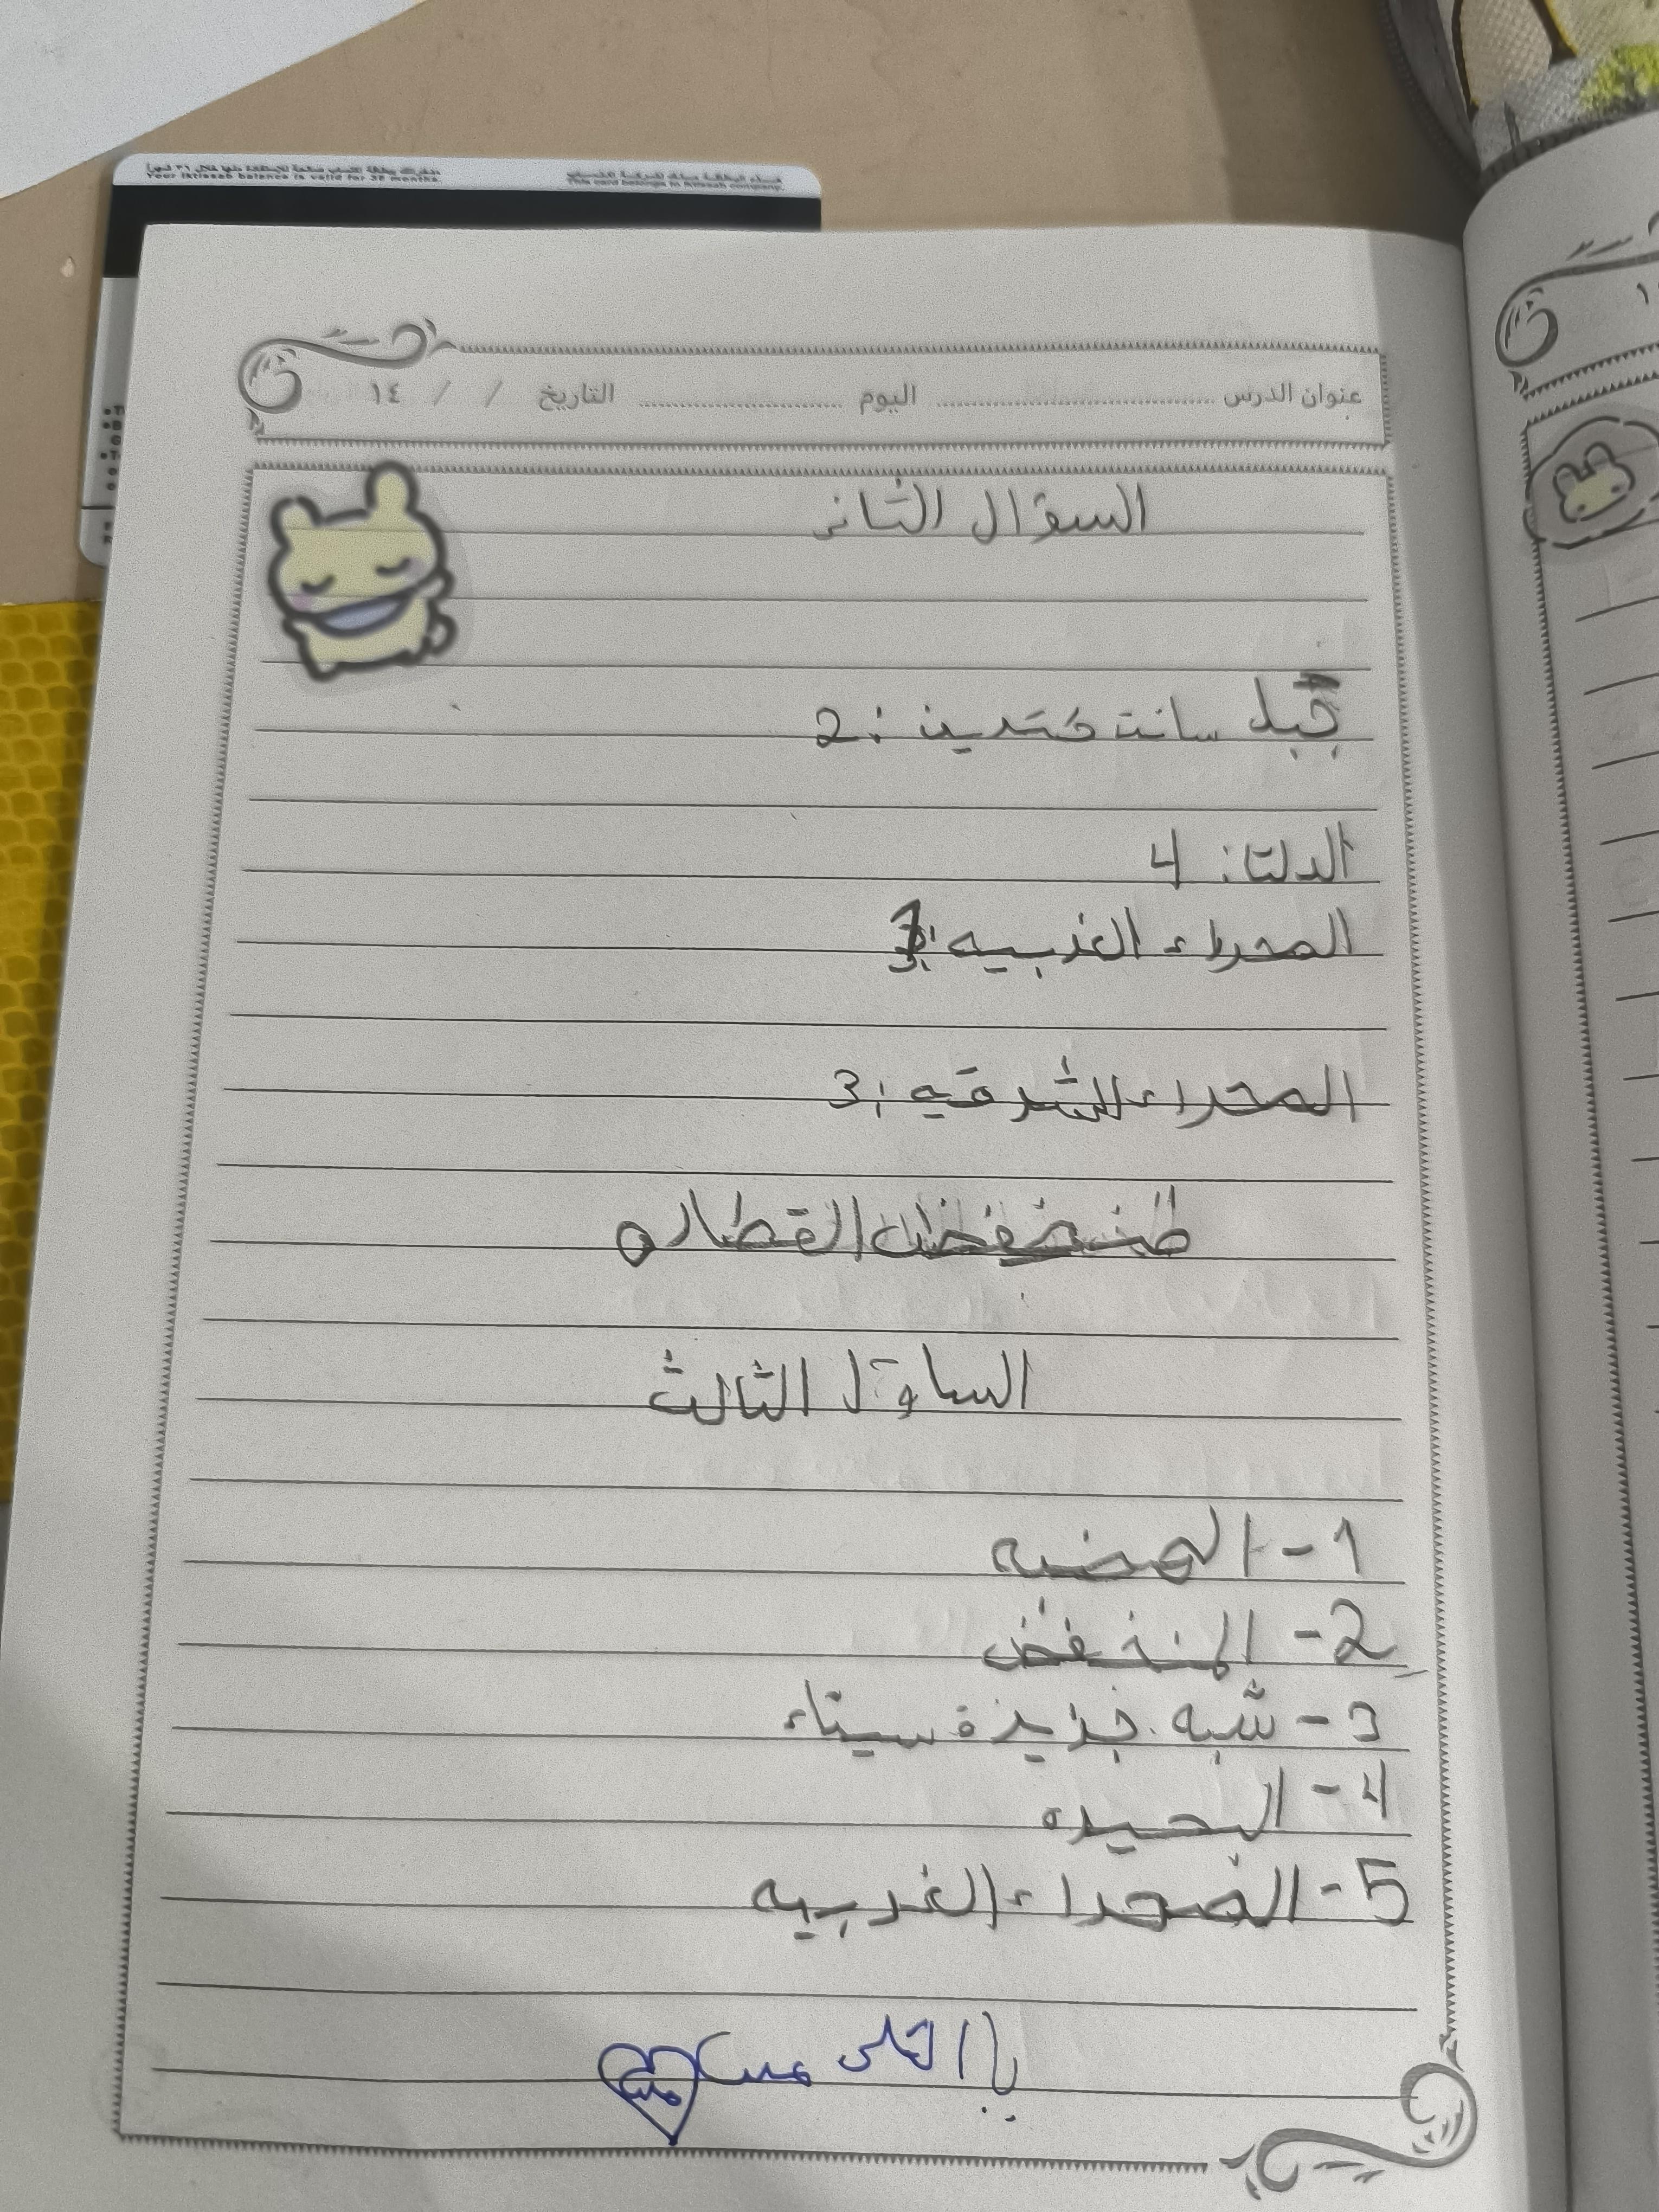 مشترياتك ببطاقة اكتساب صالحة للإستفادة منها خلال ٣٦ شهراً
Your iktissab balance is valid for 36 months.
هذه البطاقة ملك لشركة اكتساب
This card belongs to Iktissab company.
عنوان الدرس اليوم التاريخ / / ١٤
السؤال الثانى
جبل سانت كترين : 2
الدلتا : 4
الصحراء الغربيه : 1
الصحراء الشرقيه : 3
منخفض القطاره
الساؤل الثالث
1 - الهضبه
2 - المنخفض
3 - شبه جزيرة سيناء
4 - البحيره
5 - الصحراء الغربيه